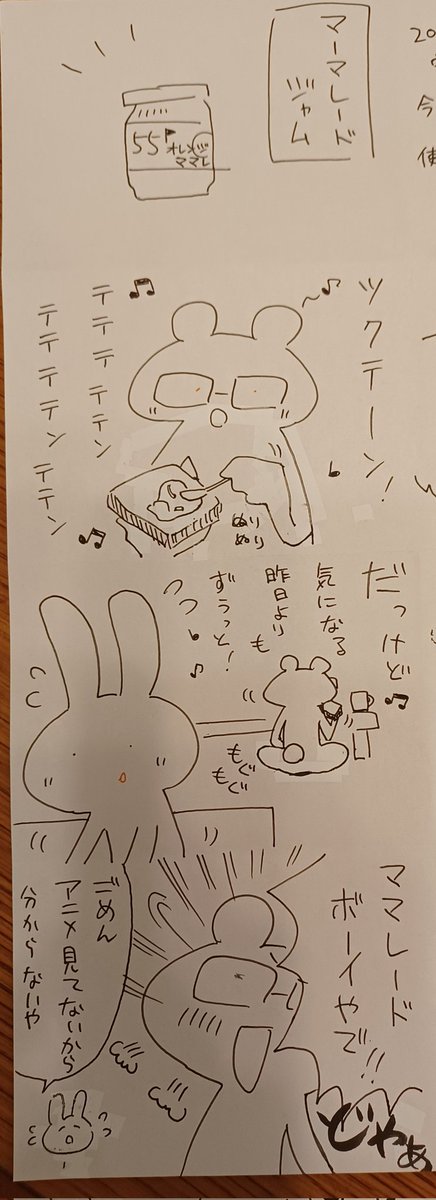 マーマレード
ジャム
55
オレンジ
ママレ
20
今
使
ツクテーン!
テテテ テテン
テテテテン テテン
ぬりぬり
だっけど
気になる
昨日よりも
ずうっと!
もぐもぐ
ママレード
ボーイやで!!
どやぁ
ごめん
アニメ見てないから
分からないや